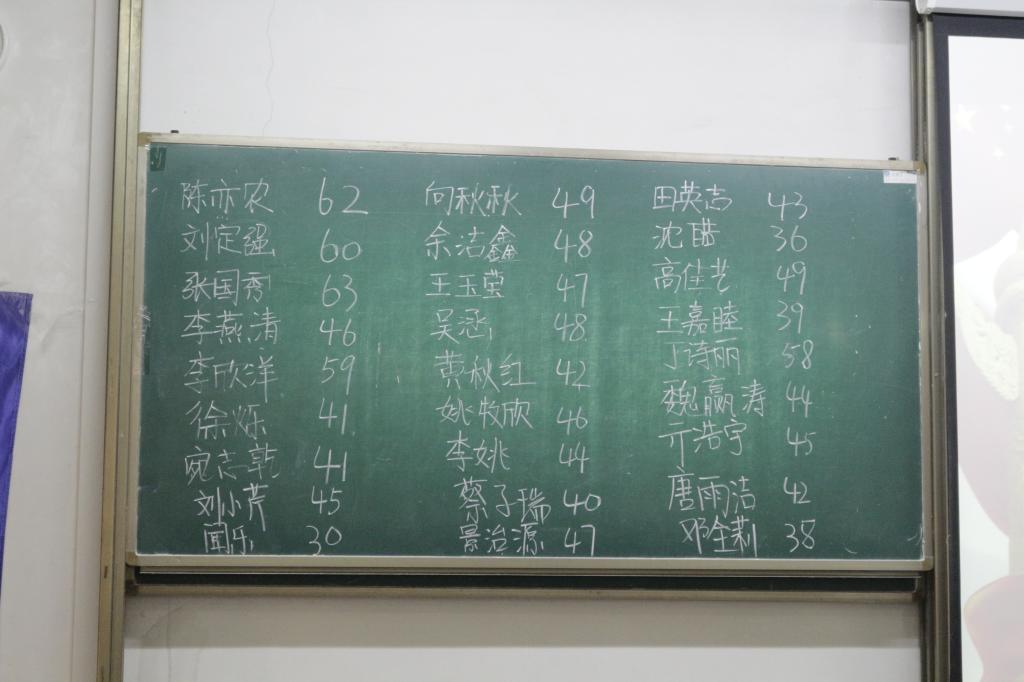 陈亦农 62 向秋秋 49 田英志 43
刘定疆 60 余洁鑫 48 沈醋 36
张国秀 63 王玉莹 47 高佳艺 49
李燕清 46 吴涵 48 王嘉睦 39
李欣洋 59 黄秋红 42 丁诗丽 58
徐烁 41 姚牧欣 46 魏赢涛 44
宛志乾 41 李姚 44 亓浩宇 45
刘小芹 45 蔡子瑞 40 唐雨洁 42
闻乐 30 景治源 47 邓全莉 38